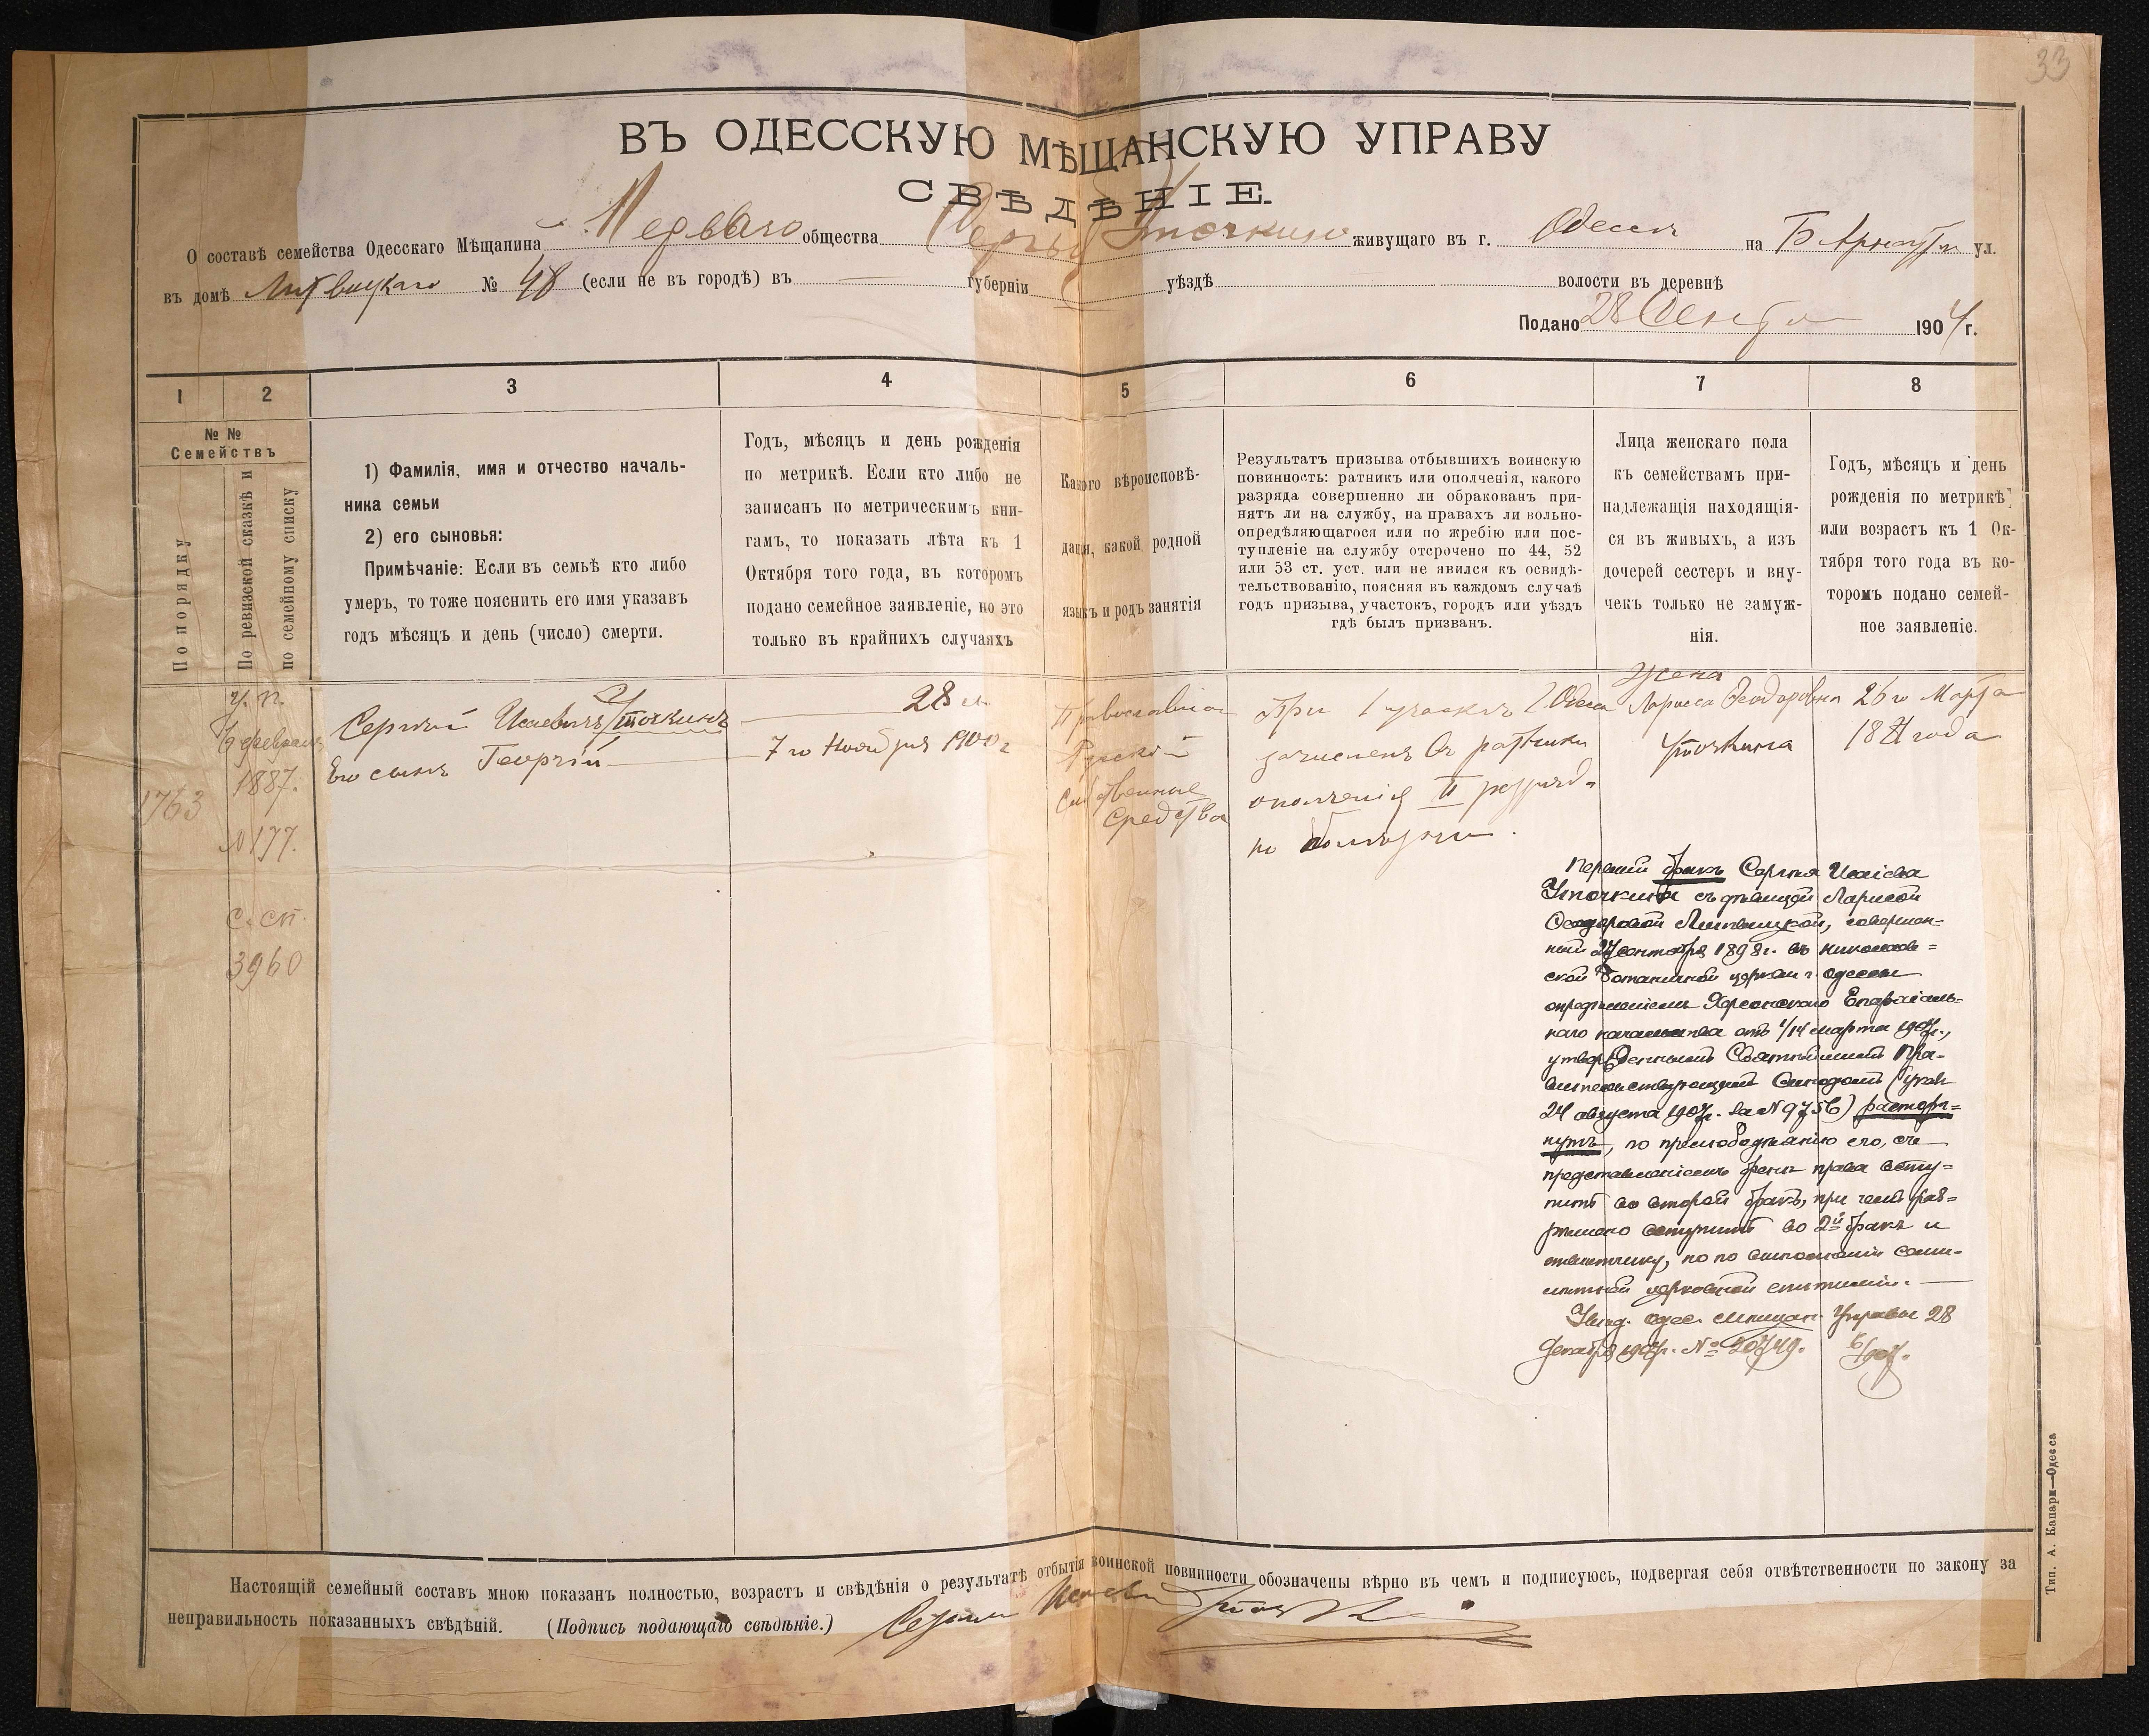 33
ВЪ ОДЕССКУЮ МѢЩАНСКУЮ УПРАВУ
СВѢДѢНІЕ.
О составѣ семейства Одесскаго Мѣщанина Перваго общества Сергѣй Уточкина живущаго въ г. Одессѣ на Б Арнаутск ул.
въ домѣ Литвицкаго № 48 (если не въ городѣ) въ губерніи уѣздѣ волости въ деревнѣ
Подано 28 Сентя 1904 г.
1 2 3 4 5 6 7 8
№ №
Семействъ
По порядку
По ревизской сказкѣ и
по семейному списку
1) Фамилія, имя и отчество началь-
ника семьи
2) его сыновья:
Примѣчаніе: Если въ семьѣ кто либо
умеръ, то тоже пояснить его имя указавъ
годъ мѣсяцъ и день (число) смерти.
Годъ, мѣсяцъ и день рожденія
по метрикѣ. Если кто либо не
записанъ по метрическимъ кни-
гамъ, то показать лѣта къ 1
Октября того года, въ которомъ
подано семейное заявленіе, но это
только въ крайнихъ случаяхъ
Какого вѣроисповѣ-
данія, какой родной
языкъ и родъ занятія
Результатъ призыва отбывшихъ воинскую
повинность: ратникъ или ополченія, какого
разряда совершенно ли обракованъ при-
нятъ ли на службу, на правахъ ли вольно-
опредѣляющагося или по жребію или пос-
тупленіе на службу отсрочено по 44, 52
или 53 ст. уст. или не явился къ освидѣ-
тельствованію, поясняя въ каждомъ случаѣ
годъ призыва, участокъ, городъ или уѣздъ
гдѣ былъ призванъ.
Лица женскаго пола
къ семействамъ при-
надлежащія находящія-
ся въ живыхъ, а изъ
дочерей сестеръ и вну-
чекъ только не замуж-
нія.
Годъ, мѣсяцъ и день
рожденія по метрикѣ
или возрастъ къ 1 Ок-
тября того года въ ко-
торомъ подано семей-
ное заявленіе.
1763
У. п.
6 февраля
1887.
№ 177.
С. сп.
3960
Сергѣй Исаевичъ Уточкинъ
Его сынъ Георгій
28 л.
7 го Ноября 1900 г
Православнаго
Русскій
собственные
средства
При 1 участкѣ г Одессы
зачисленъ въ ратники
ополченія II разряда
по
Жена
Лариса Феодоровна
Уточкина
26 го Марта
1871 года
Первый бракъ Сергѣя Исаіева
Уточкина съ дѣвицей Ларисой
Ѳеодоровой Литвицкой, совершен-
ный 27 сентября 1898 г. въ Николаев-
ской Ботаничной церкви г. Одессы
опредѣленіемъ Херсонскаго Епархіаль-
наго начальства отъ 1/14 марта 1907 г.,
утвержденнымъ Святѣйшимъ Пра-
вительствующимъ Синодомъ (указъ
24 августа 1907 г. за № 9756) расторг-
нутъ, по прелюбодѣянію его, съ
предоставленіемъ женѣ права всту-
пить во второй бракъ, при чемъ раз-
рѣшено вступить во 2й бракъ и
отвѣтчику, но по выполненіи семи-
лѣтней церковной епитиміи.
Увѣд. Одес. Мѣщан. Управы 28
декабря 1907 г. № 20749. Б/907.
Настоящій семейный составъ мною показанъ полностью, возрастъ и свѣдѣнія о результатѣ отбытія воинской повинности обозначены вѣрно въ чемъ и подписуюсь, подвергая себя отвѣтственности по закону за
неправильность показанныхъ свѣдѣній. (Подпись подающаго свѣдѣніе.) Сергѣй Исаевъ Уточкин
Тип. А. Капари—Одесса